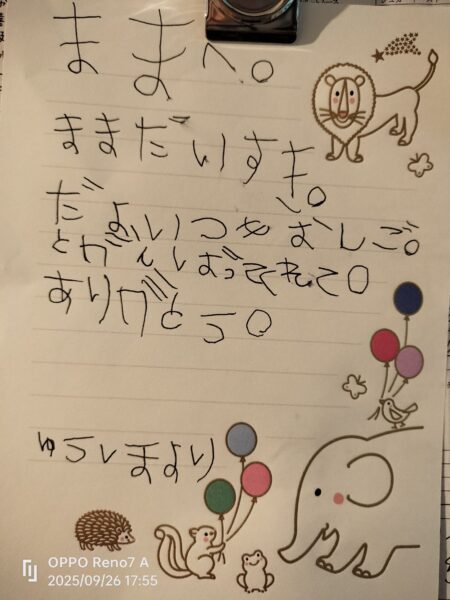 ままへ。
ままだいすき。
だよいつもおしご。
とがんばってくれて。
ありがとう。
ゆういまより
OPPO Reno7 A
2025/09/26 17:55